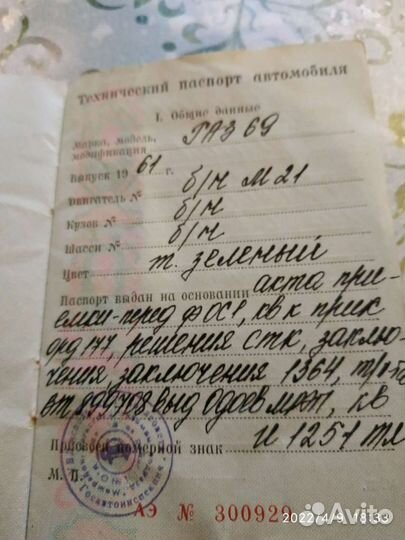 Технический паспорт автомобиля
I. Общие данные
Марка, модель, ГАЗ 69
модификация
Выпуск 19 61 г.
Двигатель № б/н М21
Кузов № б/н
Шасси № б/н
Цвет т. зеленый
Паспорт выдан на основании акта при-
емки-перед ф ОС1, кв к прик
орд 177, решения стк, заклю-
чения, заключения 1364,
выд Одоев кв
Присвоен номерной знак И 1251 тл
М. П.
АЭ № 300929
2022/4/9 18:33
Avito